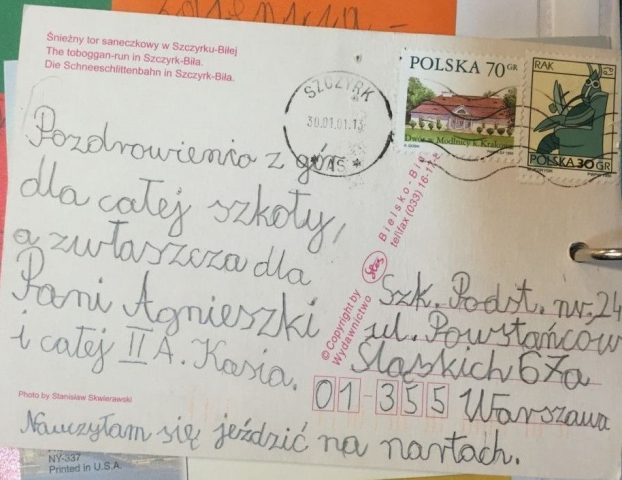 Śnieżny tor saneczkowy w Szczyrku-Biłej
The toboggan-run in Szczyrk-Biła.
Die Schneeschlittenbahn in Szczyrk-Biła.
SZCZYRK
30.01.01.13
POLSKA 70 GR
Dwór w Modlnicy k. Krakowa
RAK
POLSKA 30 GR
Pozdrowienia z gór
dla całej szkoły,
a zwłaszcza dla
Pani Agnieszki
i całej II A. Kasia.
Nauczyłam się jeździć na nartach.
© Copyright by
Wydawnictwo
Bielsko-Bi
tel/fax (033) 16-11-
Szk. Podst. nr. 24
ul. Powstańców
Śląskich 67a
01-355 Warszawa
Photo by Stanisław Skwierawski
NY-337
Printed in U.S.A.